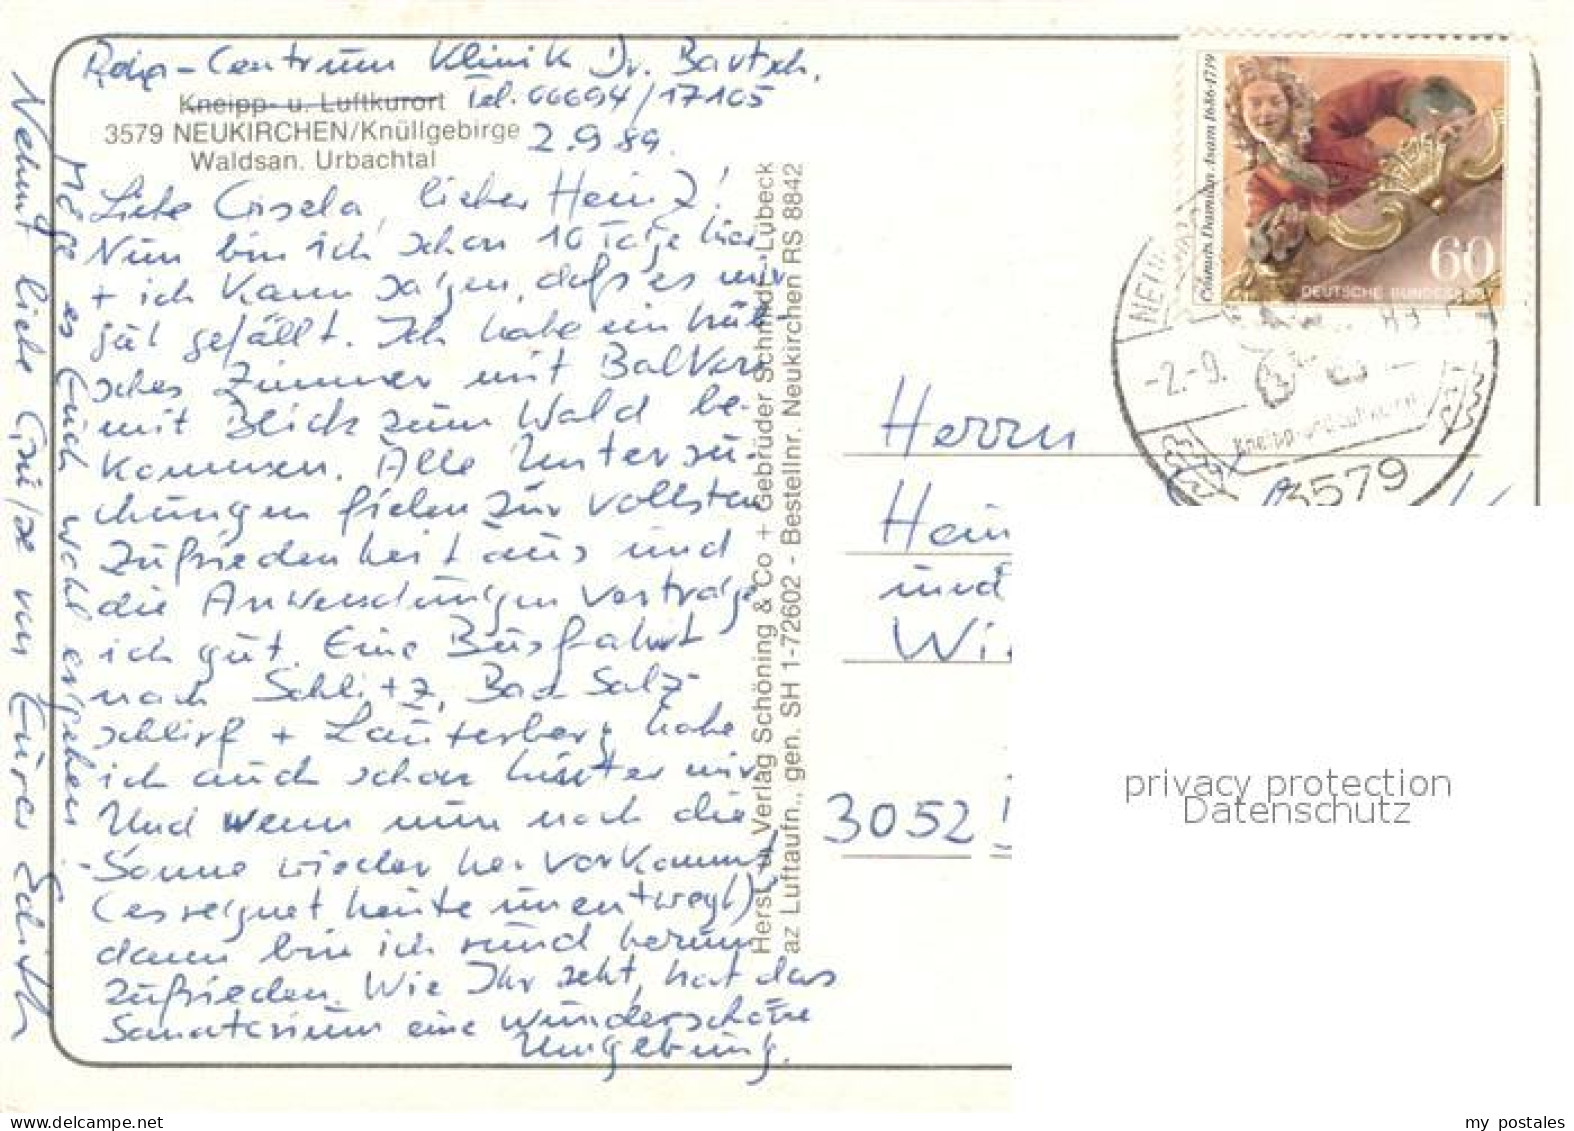 Centrum Klinik Dr. Bartsch.
Kneipp- u. Luftkurort Tel. 06694/17105
3579 NEUKIRCHEN/Knüllgebirge 2.9.89
Waldsan. Urbachtal
Liebe Gisela, lieber Heinz!
Nun bin ich schon 10 Tage hier
+ ich kann sagen, daß es mir
gut gefällt. Ich habe ein hüb-
sches Zimmer mit Balkon
mit Blick zum Wald be-
kommen. Alle Untersu-
chungen fielen zur vollsten
Zufriedenheit aus und
die Anwendungen vertrage
ich gut. Eine Busfahrt
nach Schlitz, Bad Salz-
schlirf + Lauterberg habe
ich auch schon hinter mir.
Und wenn nun noch die
Sonne wieder hervorkommt
(es regnet heute unentwegt),
dann bin ich rund herum
zufrieden. Wie Ihr seht, hat das
Sanatorium eine wunderschöne
Umgebung.
Möge es Euch wohl ergehen
Nehmt liebe Grüße von Eurer Edith
Herst. u. Verlag Schöning & Co + Gebrüder Schmidt-Lübeck
az Luftaufn., gen. SH 1-72602 - Bestellnr. Neukirchen RS 8842
Cosmas Damian Asam 1686-1739
60
DEUTSCHE BUNDESPOST
-2.-9.
89
3579
Herrn
Hein
und
Wi
3052
privacy protection
Datenschutz
delcampe.net
my_postales